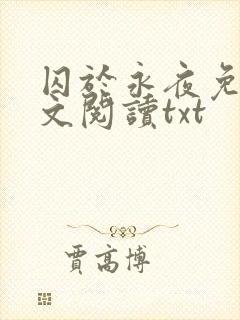 囚於永夜免
文閱讀txt
賈高博